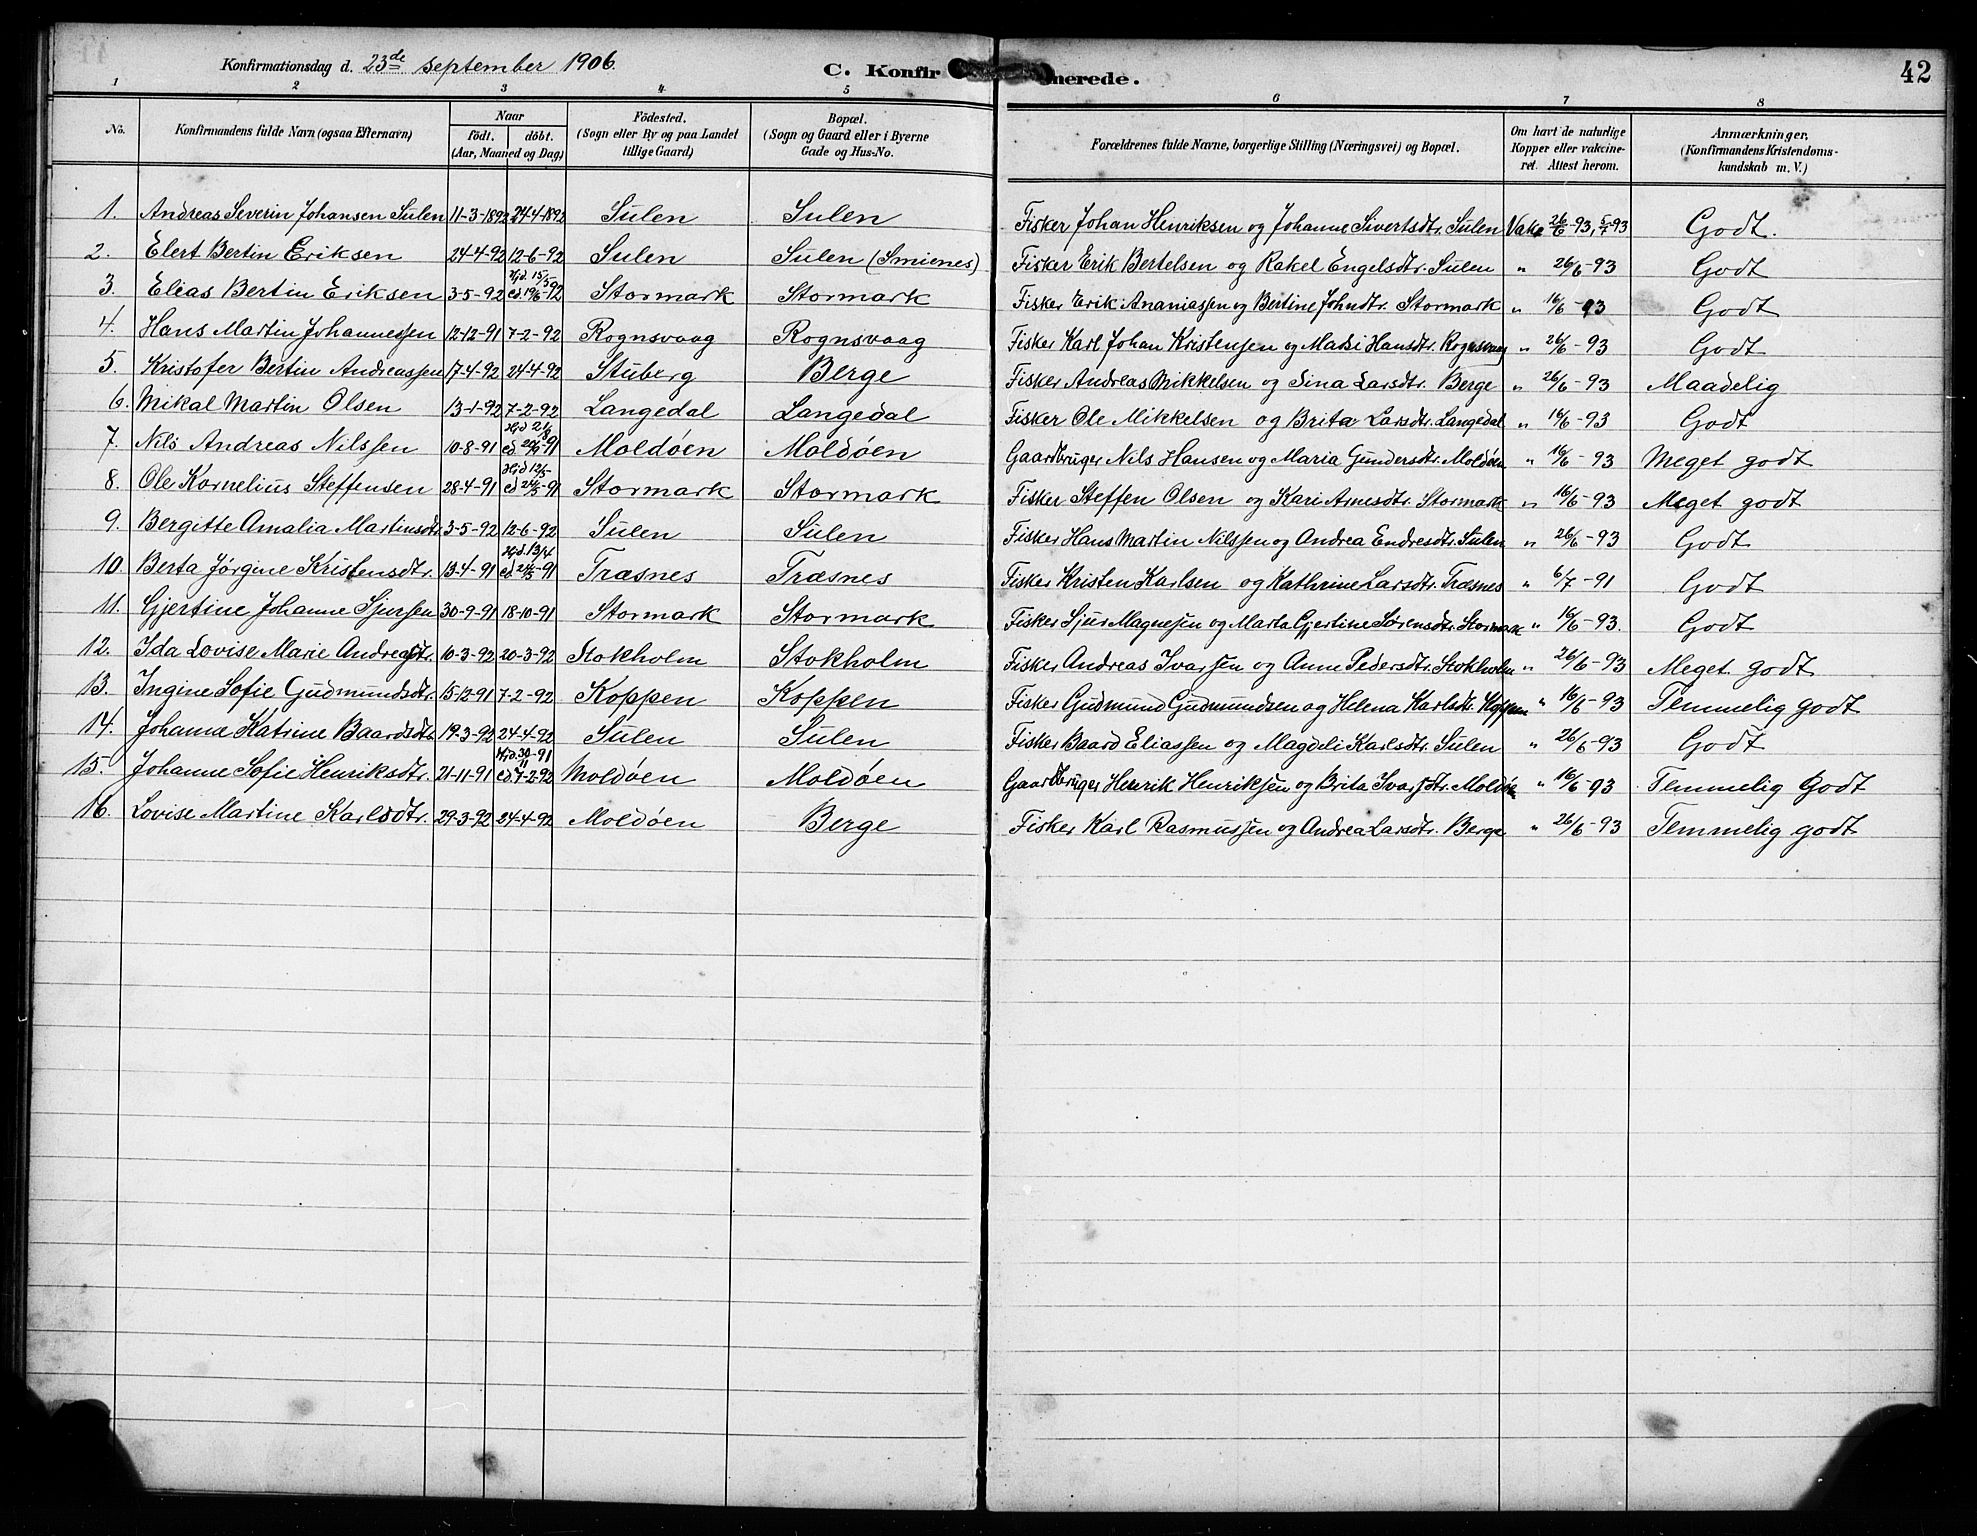 Konfirmationsdag d. 23de september 1906. C. Konfir merede. 42
1 2 3 4 5 6 7 8
No. Konfirmandens fulde Navn (ogsaa Efternavn) Naar födt. döbt. (Aar, Maaned og Dag) Födested. (Sogn eller By og paa Landet tillige Gaard) Bopæl. (Sogn og Gaard eller i Byerne Gade og Hus-No. Forældrenes fulde Navne, borgerlige Stilling (Næringsvei) og Bopæl. Om havt de naturlige Kopper eller vakcineret. Attest herom. Anmærkninger, (Konfirmandens Kristendomskundskab m. V.)
1. Andreas Severin Johansen Sulen 11-3-1892 24-4-1892 Sulen Sulen Fisker Johan Henriksen og Johanne Sivertsdtr. Sulen Vakc 26/6-93, 5/7-93 Godt.
2. Elert Bertin Eriksen 24-4-92 12-6-92 Sulen Sulen (Smienes) Fisker Erik Bertelsen og Rakel Engelsdtr. Sulen " 26/6-93 Godt
3. Elias Bertin Eriksen 3-5-92 Hjd. 15/5 cd. 19/6-92 Stormark Stormark Fisker Erik Ananiassen og Bertine Johndtr. Stormark " 16/6-93 Godt
4. Hans Martin Johannessen 12-12-91 7-2-92 Rognsvaag Rognsvaag Fisker Karl Johan Kristensen og Madsi Hansdtr. Rognsvaag " 26/6-93 Godt
5. Kristofer Bertin Andreassen 17-4-92 24-4-92 Stuberg Berge Fisker Andreas Mikkelsen og Sina Larsdtr. Berge " 26/6-93 Maadelig
6. Mikal Martin Olsen 13-1-92 7-2-92 Langedal Langedal Fisker Ole Mikkelsen og Brita Larsdtr. Langedal " 16/6-93 Godt
7. Nils Andreas Nilssen 10-8-91 Hjd 21/8 cd. 20/9-91 Moldøen Moldøen Gaardbruger Nils Hansen og Maria Gundersdtr. Moldøen " 16/6-93 Meget godt
8. Ole Kornelius Steffensen 28-4-91 Hjd 12/5 cd 24/5-91 Stormark Stormark Fisker Steffen Olsen og Kari Arnesdtr. Stormark " 16/6-93 Meget godt
9. Bergitte Amalia Martinsdtr. 3-5-92 12-6-92 Sulen Sulen Fisker Hans Martin Nilssen og Andrea Endresdtr. Sulen " 26/6-93 Godt
10. Berta Jørgine Kristensdtr. 13-4-91 Hjd. 13/4 cd 24/5-91 Træsnes Træsnes Fisker Kristen Karlsen og Kathrine Larsdtr. Træsnes " 6/7-91 Godt
11. Gjertine Johanne Sjursen 30-9-91 18-10-91 Stormark Stormark Fisker Sjur Magnesen og Marta Gjertine Sørensdtr. Stormark " 16/6-93. Godt
12. Ida Lovise Marie Andreasdtr. 10-3-92 20-3-92 Stokholm Stokholm Fisker Andreas Ivarsen og Anne Pedersdtr. Stokholm " 26/6-93 Meget godt
13. Ingine Sofie Gudmundsdtr. 15-12-91 7-2-92 Koppen Koppen Fisker Gudmund Gudmundsen og Helena Karlsdtr. Koppen " 16/6-93 Temmelig godt
14. Johanne Katrine Baardsdtr. 19-3-92 24-4-92 Sulen Sulen Fisker Baard Eliassen og Magdeli Karlsdtr. Sulen " 26/6-93 Godt
15. Johanne Sofie Henriksdtr. 21-11-91 Hjd. 30/11-91 cd. 7-2-92 Moldøen Moldøen Gaardbruger Henrik Henriksen og Brita Ivarsdtr. Moldøen " 16/6-93 Temmelig Godt
16. Lovise Martine Karlsdtr. 29-3-92 24-4-92 Moldøen Berge Fisker Karl Rasmussen og Andrea Larsdtr. Berge " 26/6-93 Temmelig godt